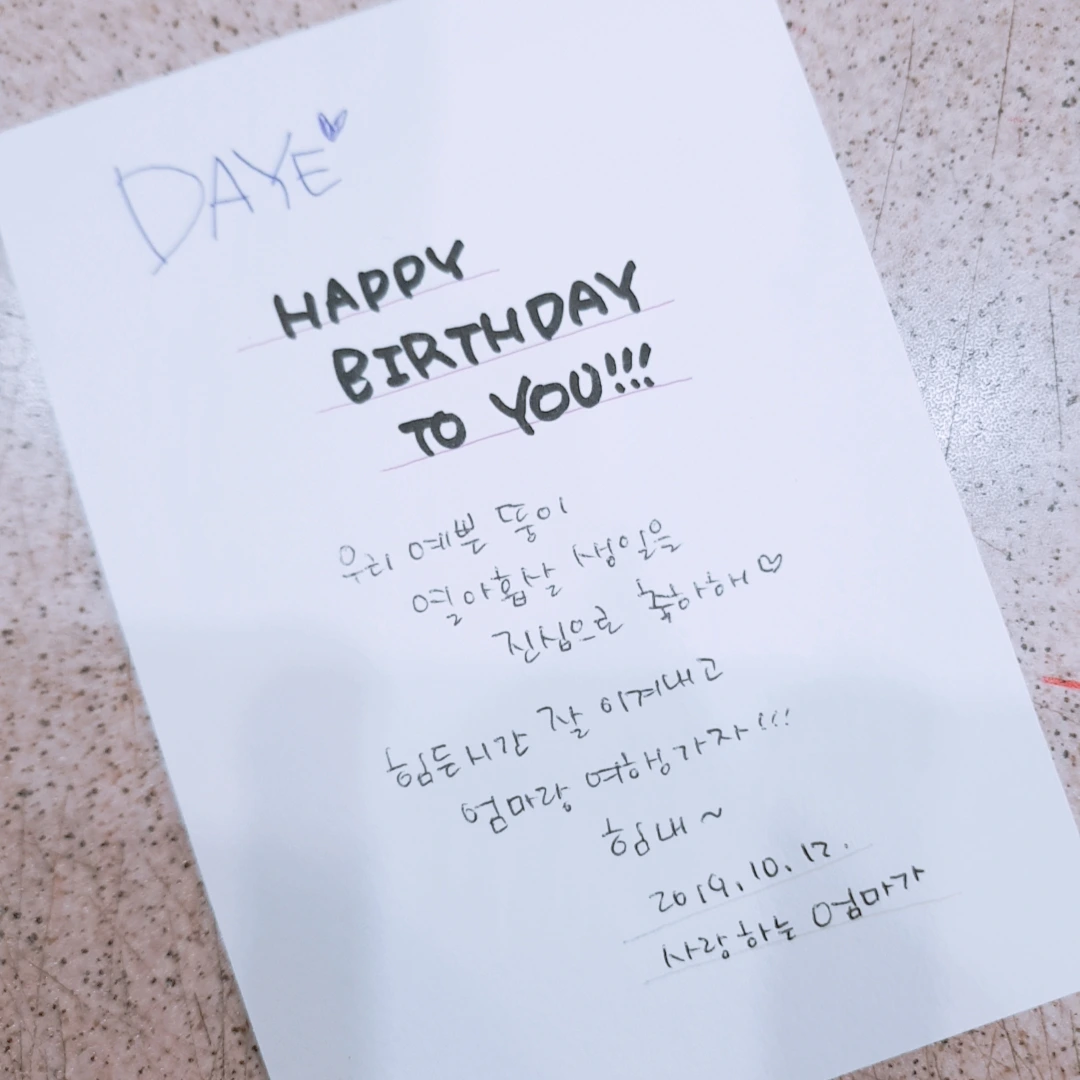 DAYE♥
HAPPY
BIRTHDAY
TO YOU!!!
우리 예쁜 뚱이
열아홉살 생일을
진심으로 축하해♡
힘든시간 잘 이겨내고
엄마랑 여행가자!!!
힘내~
2019.10.12.
사랑하는 엄마가